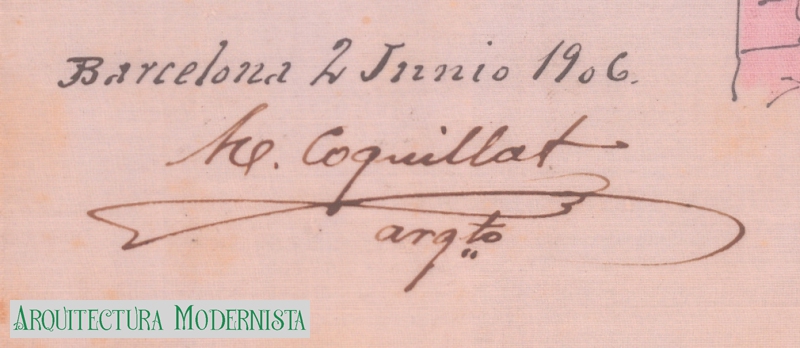 Barcelona 2 Junio 1906.
M. Coquillat
arqto
Arquitectura Modernista